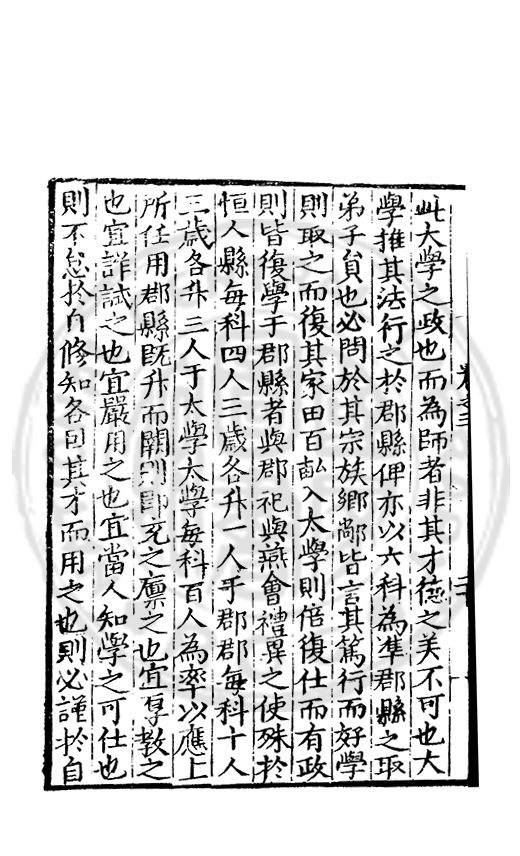 此大學之政也而為師者非其才德之美不可也大
學推其法行之於郡縣俾亦以六科為準郡縣之取
弟子員也必問於其宗族鄉鄙皆言其篤行而好學
則取之而復其家田百畝入太學則倍復仕而有政
則皆復學于郡縣者與郡祀與燕會禮異之使殊於
恒人縣每科四人三歲各升一人于郡郡每科十人
三歲各升三人于太學太學每科百人為率以應上
所任用郡縣既升而闕則即充之廪之也宜厚教之
也宜詳試之也宜嚴用之也宜當人知學之可仕也
則不怠於自修知各因其才而用之也則必謹於自